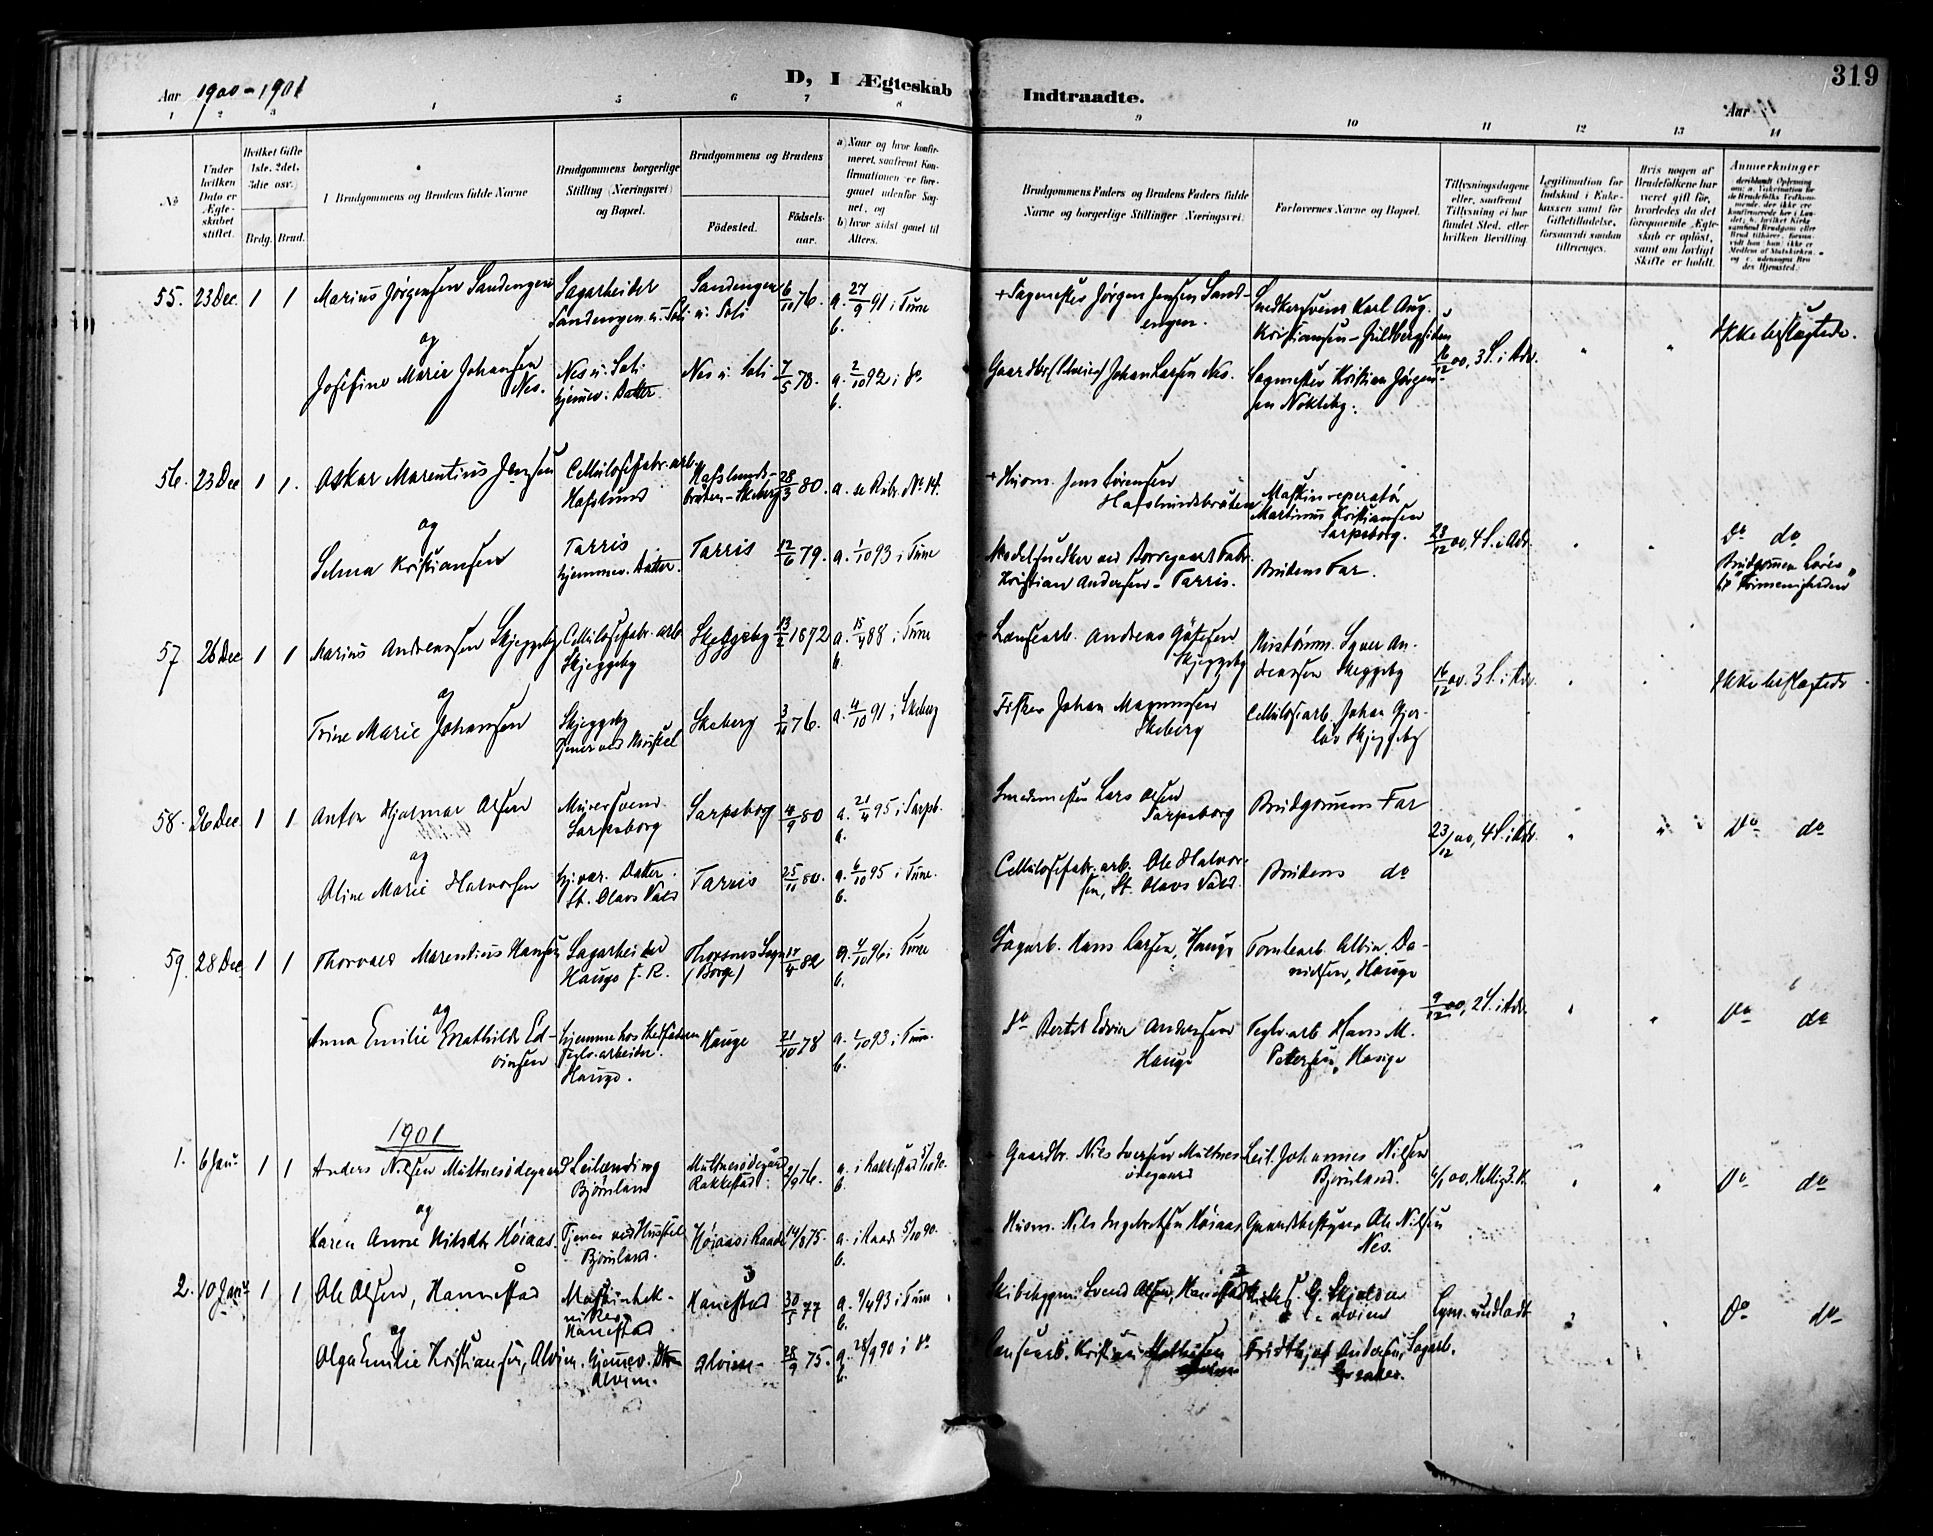 319
Aar 1900-1901
D, I Ægteskab Indtraadte.
Aar
1 2 3 4 5 6 7 8 9 10 11 12 13 14
No
Under hvilken Dato er Ægteskabet stiftet.
Hvilket Gifte (1ste, 2det, 3die osv.)
Brdg. Brud.
Brudgommens og Brudens fulde Navne
Brudgommens borgerlige Stilling (Næringsvei) og Bopæl.
Brudgommens og Brudens
Fødested.
Fødselsaar.
a) Naar og hvor konfirmeret, saafremt Konfirmationen er foregaaet udenfor Sognet, og
b) hvor sidst gaaet til Alters.
Brudgommens Faders og Brudens Faders fulde Navne og borgerlige Stillinger (Næringsvei).
Forlovernes Navne og Bopæl.
Tillysningsdagene eller, saafremt Tillysning ei har fundet Sted, efter hvilken Bevilling
Legitimation for Indskud i Enkekassen samt for Giftetilladelse, forsaavidt saadan tiltrænges.
Hvis nogen af Brudefolkene har været gift før, hvorledes da det foregaaende Ægteskab er opløst, samt om lovligt Skifte er holdt.
Anmerkninger
55. 23 Dec. 1 1 Marius Jørgensen Sandengen Sagarbeider Sandengen u. Soli Sandengen u. Soli 6/10 76. a. 27/9 91 i Tune b. + Sagmester Jørgen Jensen Sandengen. Snedkersvend Karl Aug. Kristiansen - Guldbergsiden 16/12 00, 3 S. i Adv. Ikke beslægtede.
og
Josefine Marie Johansen Nes. Nes u. Soli hjemmev. Datter Nes u. Soli 7/5 78. a. 2/10 92 i do b. Gaardbr. Johan Larsen Nes. Sagmester Kristian Jørgensen Nøkleby.
56. 23 Dec 1 1. Oskar Marentius Jensen Cellulosefabr. arb. Hafslund Hafslundsbråten - Skeberg 28/3 80. a. se Rubr. No 14. + Husm. Jens Sørensen Hafslundsbråten Maskinreperatør Martinus Kristiansen Sarpsborg. 23/12 00, 4 S. i Adv. Do do
og
Selma Kristiansen Tarris hjemmev. Datter. Tarris 12/6 79. a. 1/10 93 i Tune Modelsnedker ved Borregaard Fabr. Kristian Andersen - Tarris. Brudens Far. Brudgommen
57 26 Dec 1 1 Marius Andreassen Skjeggeby Cellulosefabr. arb. Skjeggeby Skeggeby 13/2 1872 a. 15/4 88 i Tune b. Lænsearb. Andreas Skjeggeby Syver Andreassen Skeggeby 16/12 00. 3 S. i Adv. Ikke beslægtede
og
Trine Marie Johansen Skjeggeby Skeberg 3/11 76. a. 4/10 91 i Skeberg Fisker Johan Magnussen Skeberg Cellulosearb. Johan Gjerløv Skjeggeby
58. 26 Dec 1 1 Anton Hjalmar Olsen Murersvend Sarpsborg Sarpsborg 4/9 80 a. 21/4 95 i Sarpb. b. Smedemester Lars Olsen Sarpsborg Brudgommens Far 23/12 00, 4 S. i Adv. Do do
og
Oline Marie Halvorsen hjemmev. Datter. St. Olavs Vold Tarris 25/11 80. a. 6/10 95 i Tune. b. Cellulosefabr. arb. Ole Halvorsen, St. Olavs Vold. Brudens do
59. 28 Dec 1 1 Thorvald Marentius Hansen Sagarbeider Hauge Thorsnes Sogn (Borge) 15/4 82 a. 4/10 96 i Tune b. Sagarb. Hans Larsen, Hauge Tomtearb. Albin Danielsen, Hauge 9/12 00, 2 S. i Adv. Do do
og
Anna Emilie Mathilde Edvinsen hjemme hos Stedfaderen Teglv.arbeider Hauge. Hauge 21/10 78 a. 1/10 93 i Tune. b. do Bertel Edvin Anderssen Hauge Teglv.arb. Hans M. Petersen, Hauge
1901
1. 6 Jan. 1 1 Anders Nilsen Multnesødegaard Leilænding Bjørnland Multnesødegård Rakkestad 2/9 76. a. i Rakkestad b. Gaardbr. Nils Iversen Multnesødegaard Leil. Johannes Nilsen Bjørnland. 6/1 00, Hellig 3. K. Do do
og
Karen Anne Nilsdtr. Høiaas. Tjener ved Husstel Bjørnland. Høiaas i Raade 14/8 75. a. i Raade 5/10 90. b. Husm. Nils Ingebretsen Høiaas Gaardbestyrer Ole Nilsen Nes.
2. 10 Jan. 1 1 Ole Olsen, Hannestad Maskinist Hanestad 30/5 77 a. 9/4 93 i Tune b. Skibsbyggm. Svend Olsen, Hanestad G. Skjolden Alvim Lysn. undladt Do do
og
Olga Emilie Kristiansen, Alvim. hjemmev. Dtr. Alvim. Alvim 28/9 75. a. 28/9 90 i do b. Lænsearb. Kristian Mathisen Fridthjof Andersen, Sagarb. Greaker.